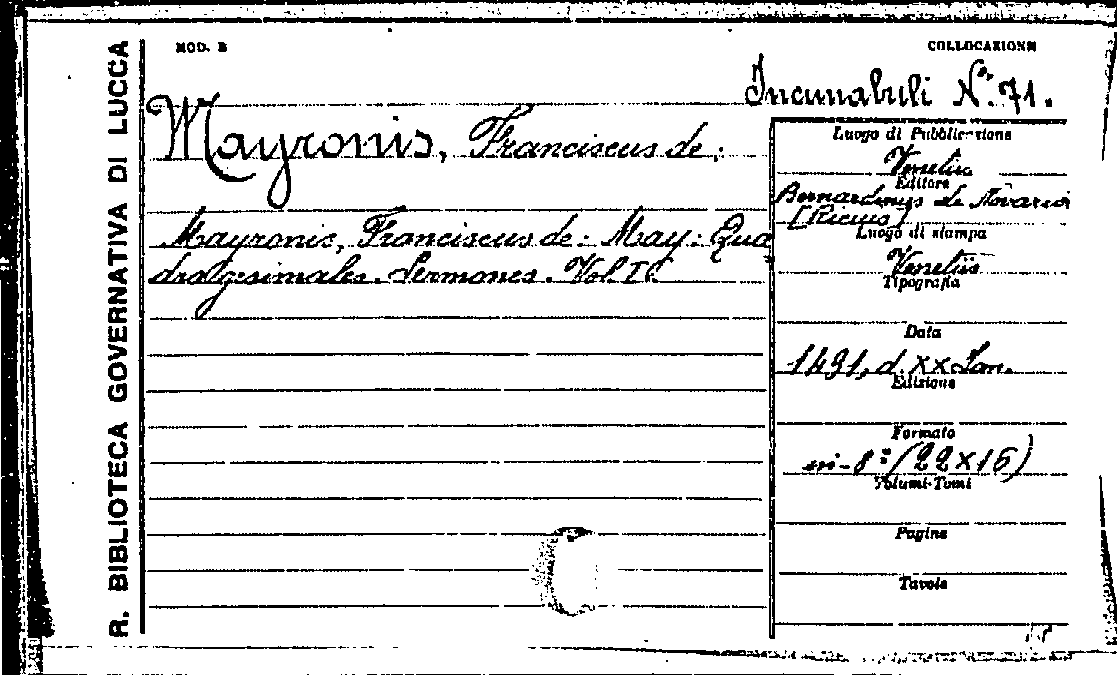 R. BIBLIOTECA GOVERNATIVA DI LUCCA
MOD. B
COLLOCAZIONE
Incunabuli N.º 71.
Mayronis, Franciscus de:
Mayronis, Franciscus de: May: Qua
dragesimales. Sermones. Vol.
Luogo di Pubblicazione
Venetiis
Editore
Bernardinus de Novaria
[Ricius]
Luogo di stampa
Venetiis
Tipografia
Data
1491, d. XX Jan.
Edizione
Formato
in-8º (22x16)
Volumi-Tomi
Pagine
Tavole